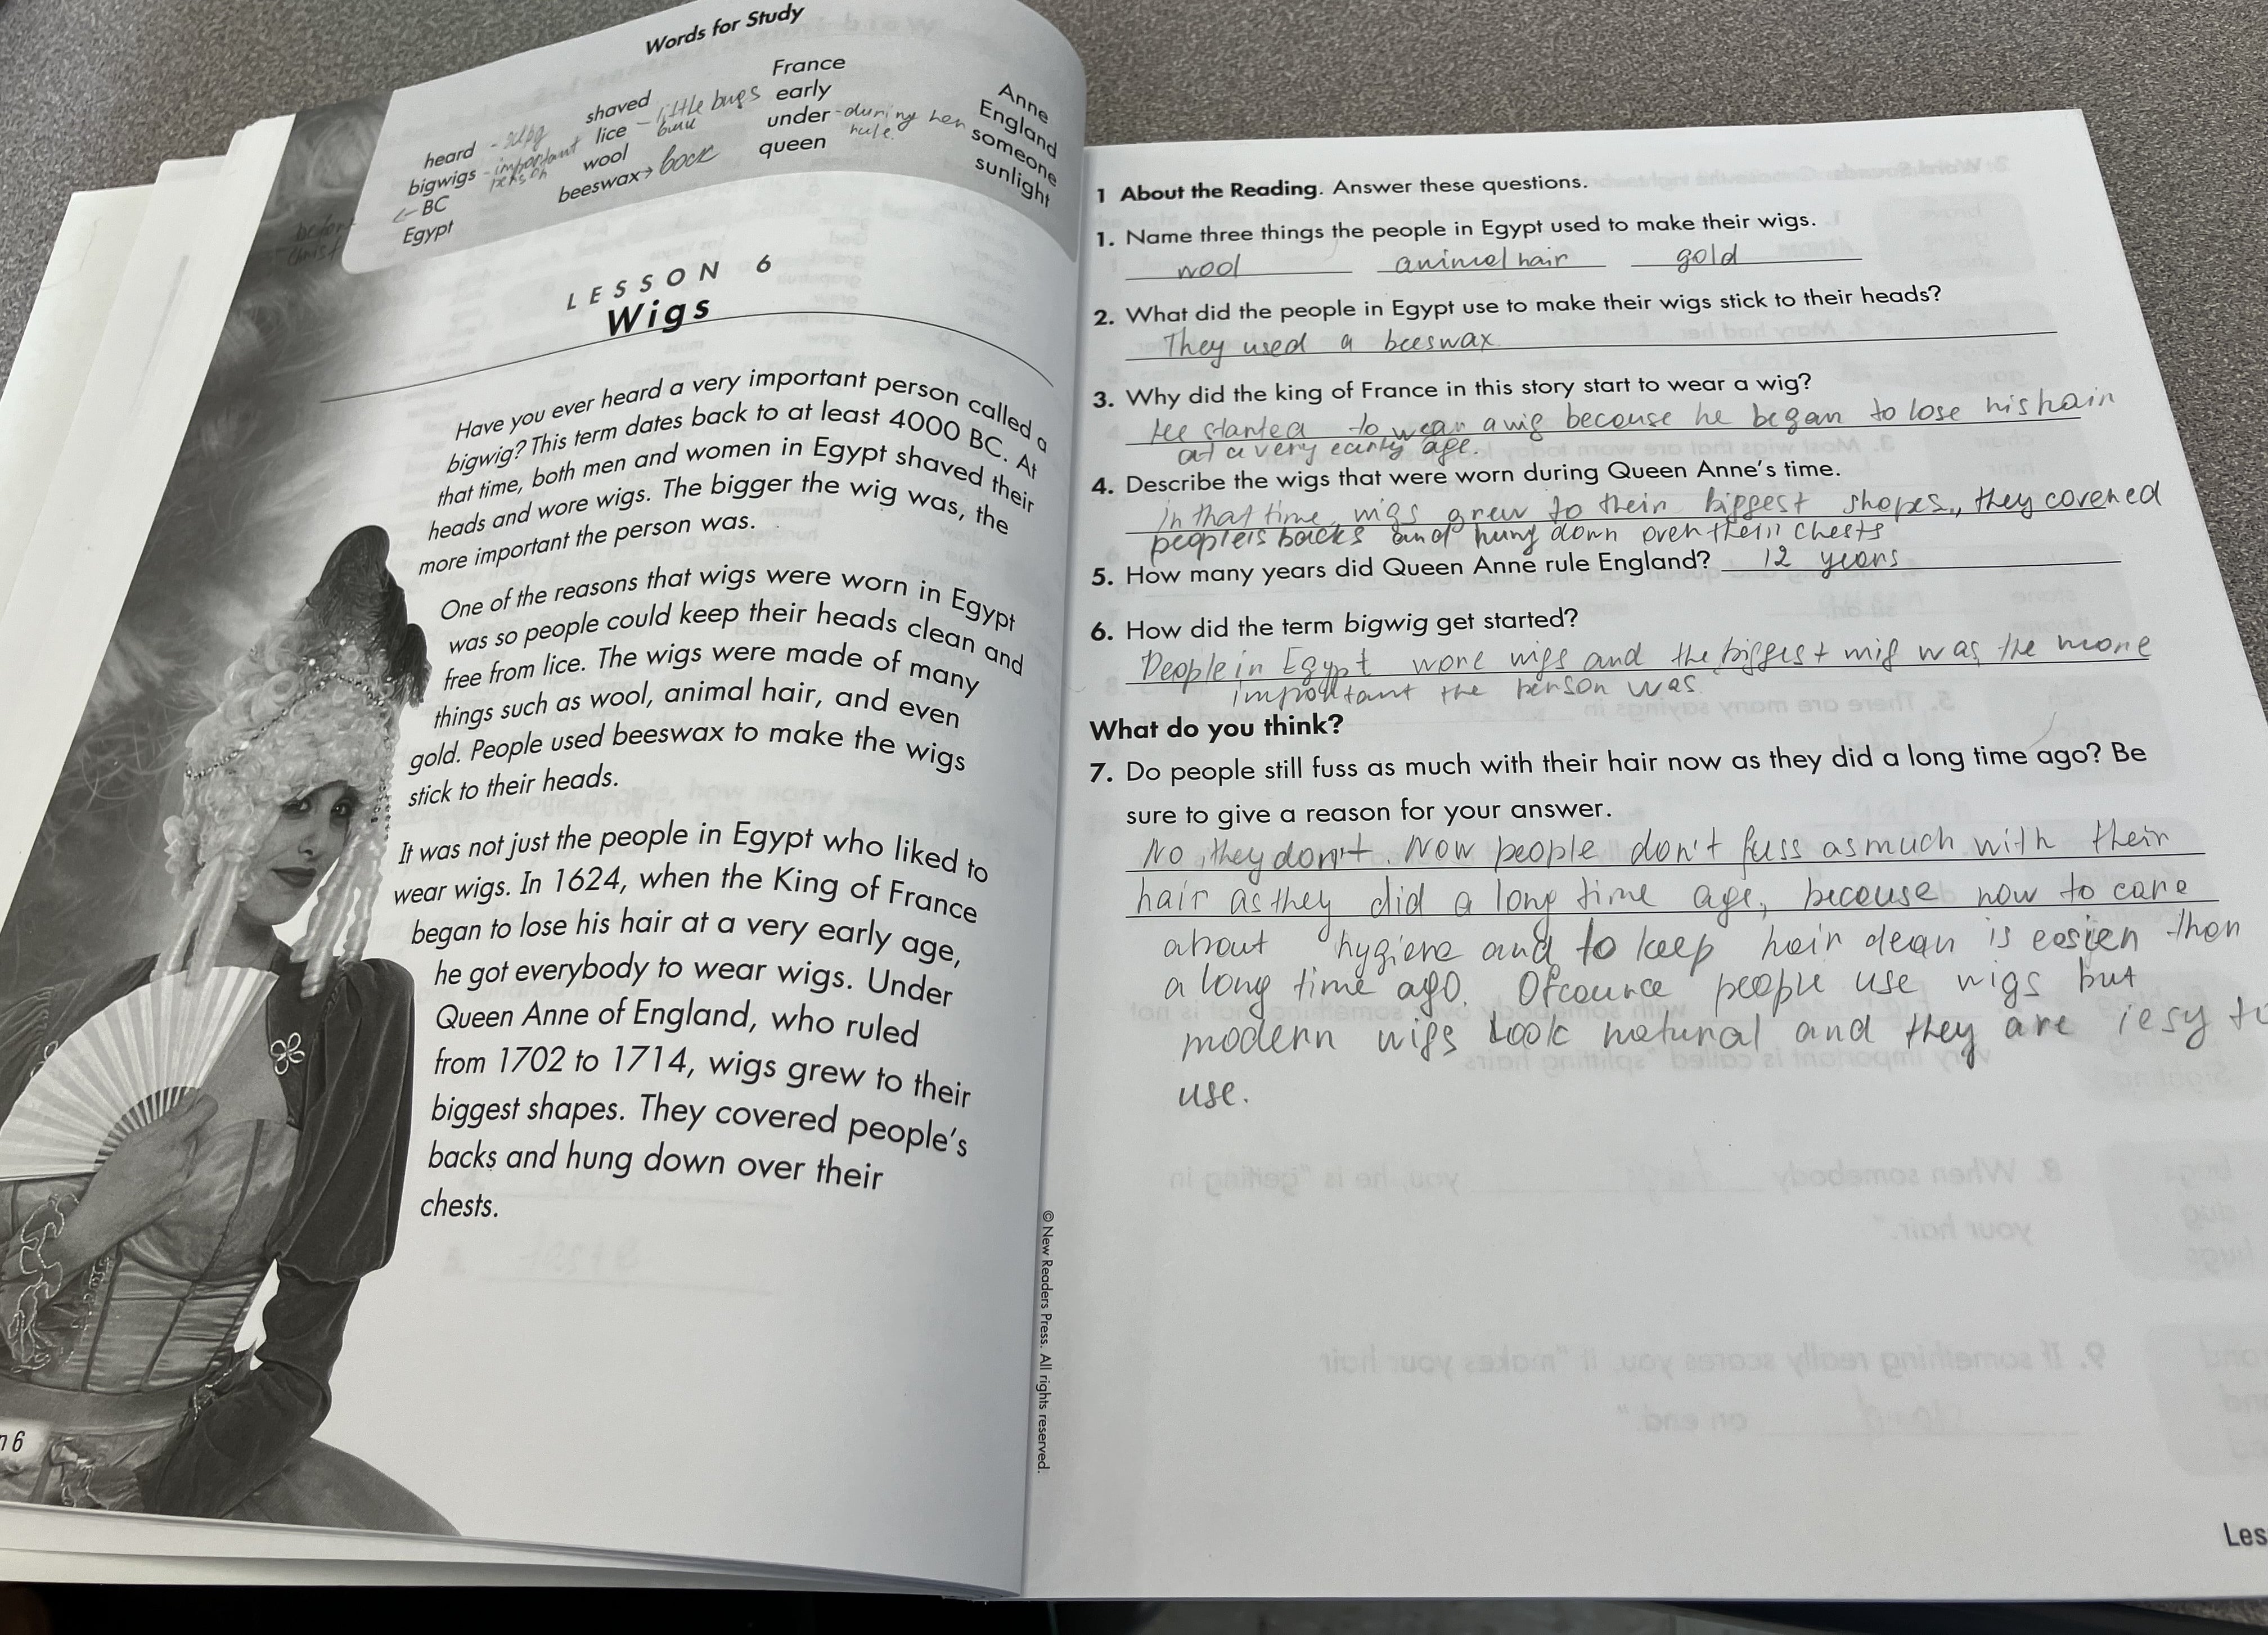 Words for Study
heard
bigwigs - important person
BC
Egypt
before
christ
shaved
lice - little bugs
wool
beeswax → воск
France
early
under - during her rule.
queen
Anne
England
someone
sunlight
LESSON 6
Wigs
Have you ever heard a very important person called a
bigwig? This term dates back to at least 4000 BC. At
that time, both men and women in Egypt shaved their
heads and wore wigs. The bigger the wig was, the
more important the person was.
One of the reasons that wigs were worn in Egypt
was so people could keep their heads clean and
free from lice. The wigs were made of many
things such as wool, animal hair, and even
gold. People used beeswax to make the wigs
stick to their heads.
It was not just the people in Egypt who liked to
wear wigs. In 1624, when the King of France
began to lose his hair at a very early age,
he got everybody to wear wigs. Under
Queen Anne of England, who ruled
from 1702 to 1714, wigs grew to their
biggest shapes. They covered people's
backs and hung down over their
chests.
n 6
© New Readers Press. All rights reserved.
1 About the Reading. Answer these questions.
1. Name three things the people in Egypt used to make their wigs.
wool animal hair gold
2. What did the people in Egypt use to make their wigs stick to their heads?
They used a beeswax.
3. Why did the king of France in this story start to wear a wig?
He started to wear a wig because he began to lose his hair
at a very early age.
4. Describe the wigs that were worn during Queen Anne's time.
In that time, wigs grew to their biggest shapes, they covered
people's backs and hung down over their chests
5. How many years did Queen Anne rule England? 12 years
6. How did the term bigwig get started?
People in Egypt wore wigs and the biggest wig was the more
important the person was.
What do you think?
7. Do people still fuss as much with their hair now as they did a long time ago? Be
sure to give a reason for your answer.
No, they don't. Now people don't fuss as much with their
hair as they did a long time age, because now to care
about hygiene and to keep hair clean is easier then
a long time ago. Ofcource people use wigs but
modern wigs look natural and they are iesy to
use.
Les